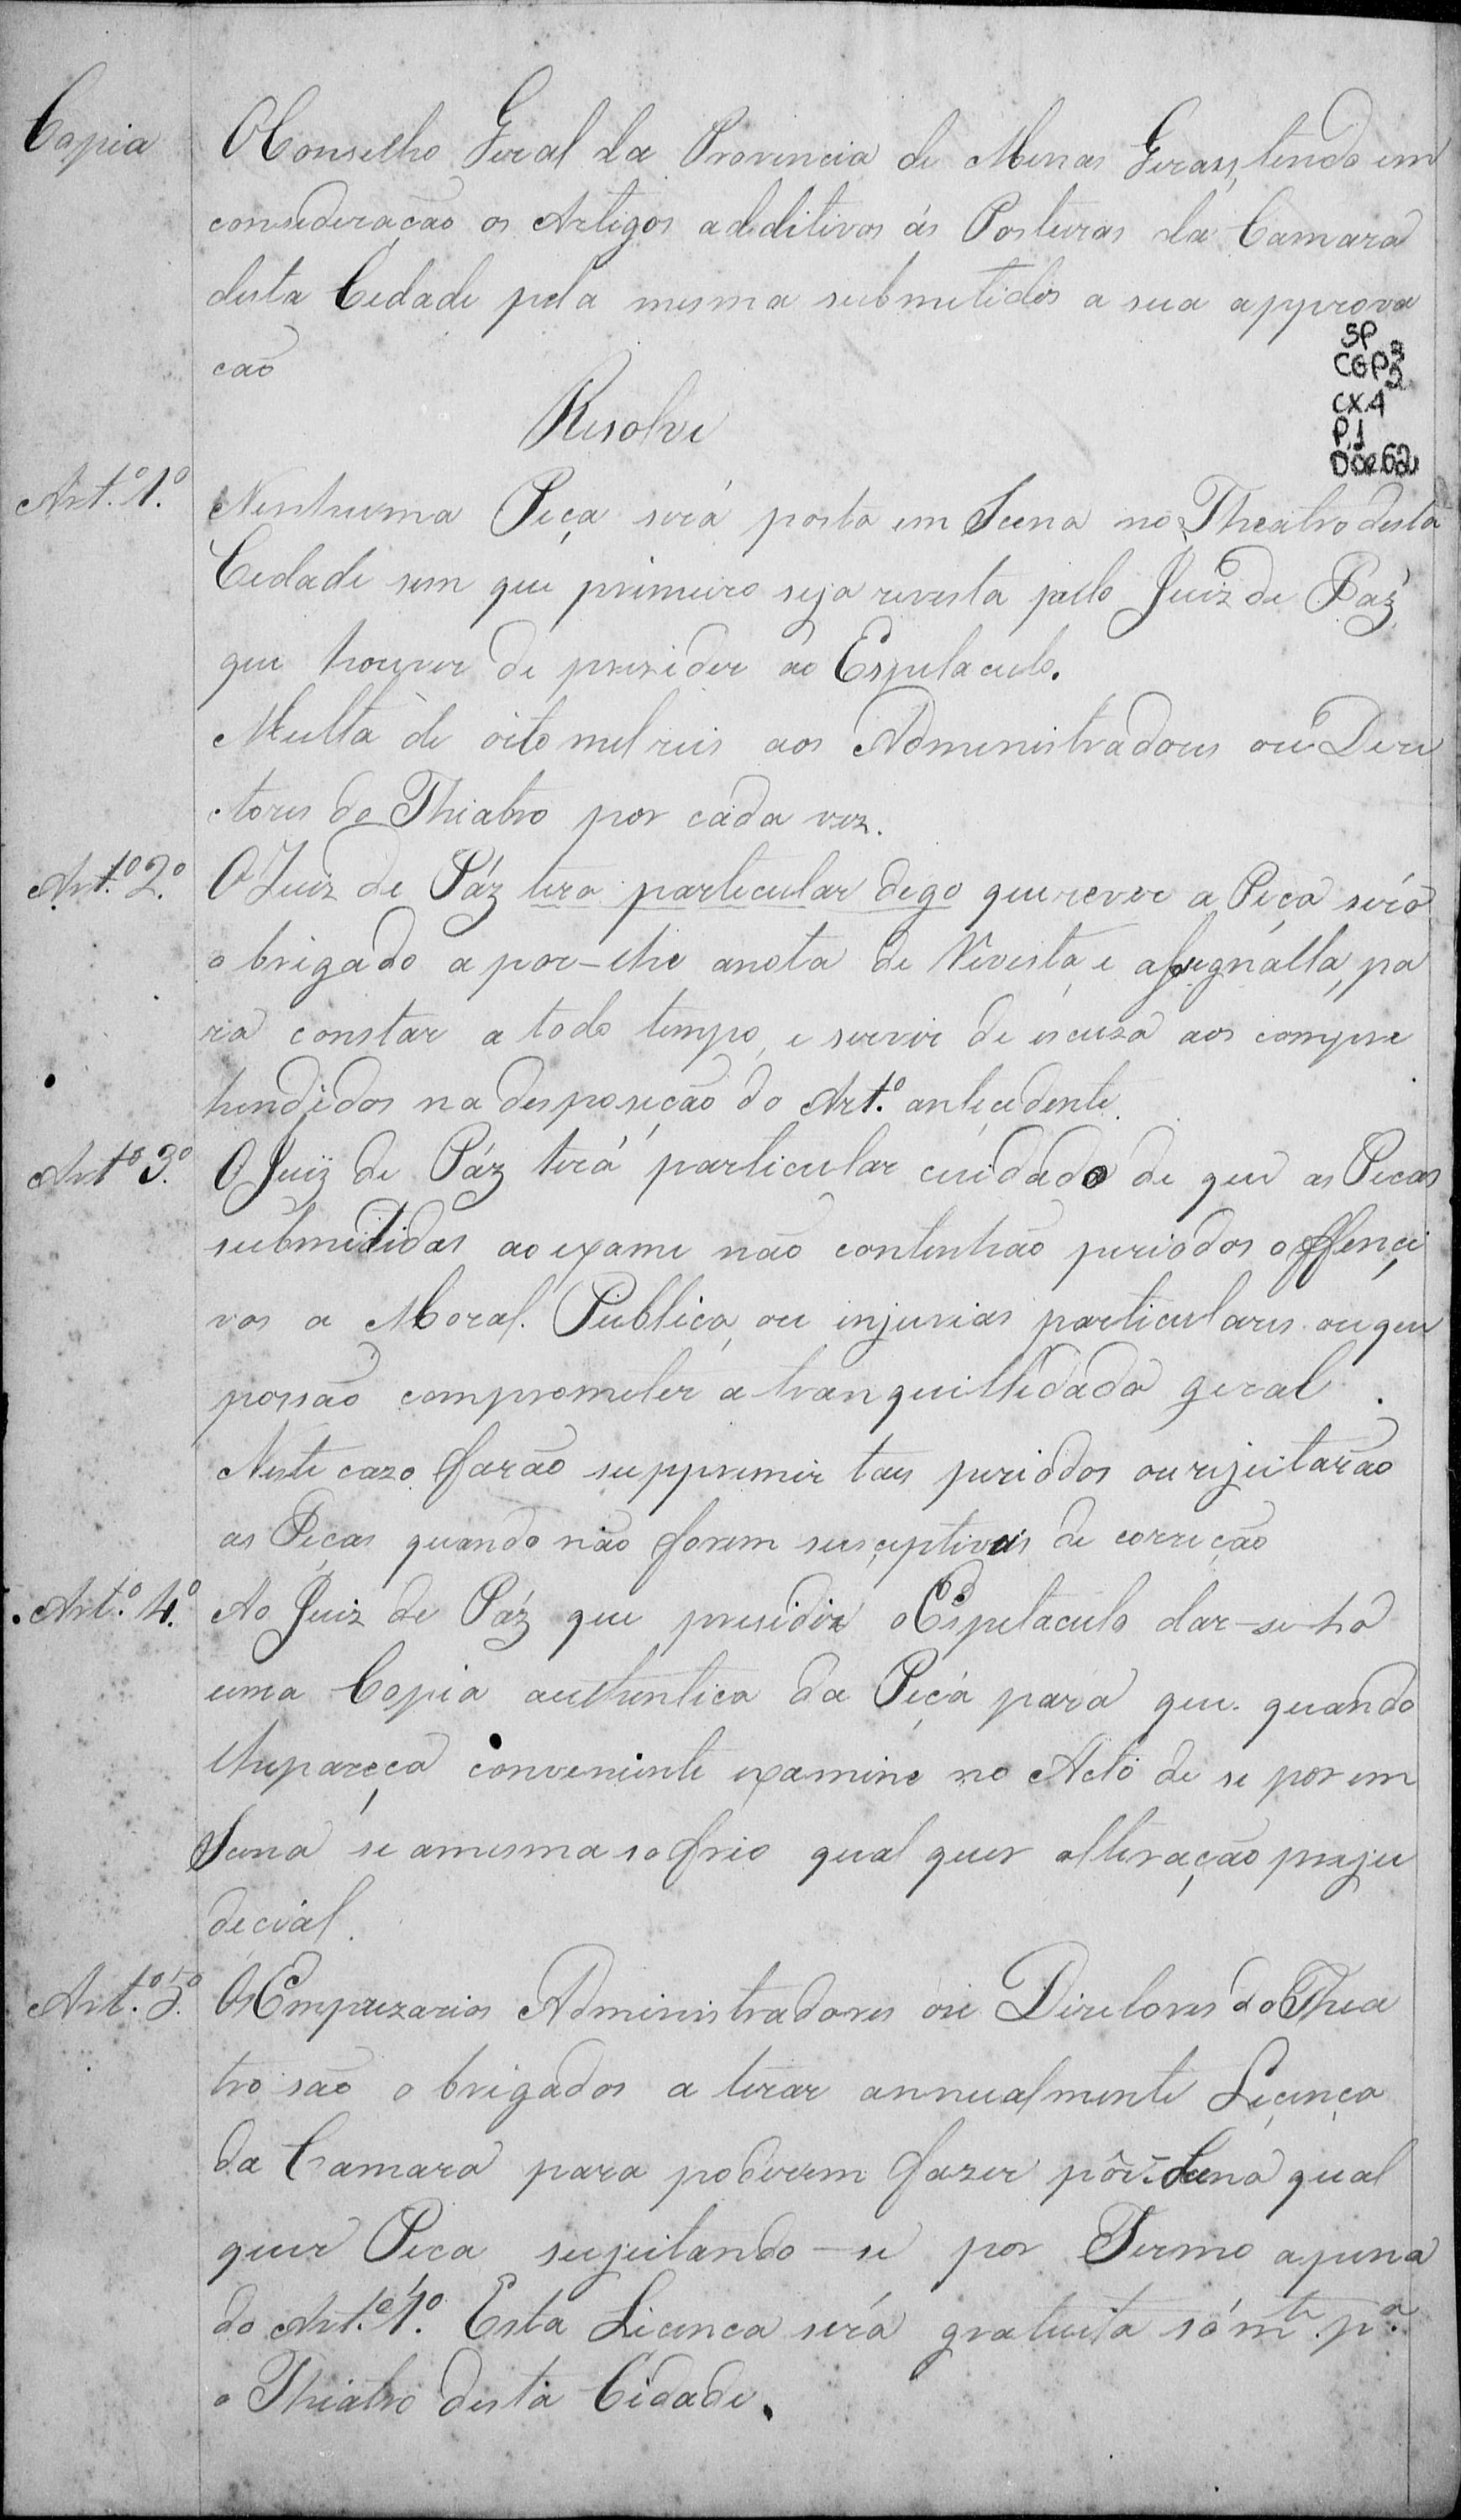 Copia
O Conselho Geral da Provincia de Minas Geraes, tendo em
consideração os Artigos additivos ás Posturas da Camara
desta Cidade pela mesma submetidos a sua approva
cão
SP
CGP3
2
CX.4
P.1
Doc.62
Resolve
Art.º 1.º
Nenhuma Peça será posta em Scena no Theatro desta
Cidade sem que primeiro seja revista pelo Juiz de Páz
que houver de prezider ao Espetaculo.
Multa de oito mil reis aos Administradores ou Dire
ctores do Theatro por cada vez.
Art.º 2.º
O Juiz de Páz tera particular digo que rever a Peça será
obrigado a por-lhe anota de Revista, e assignalla, pa
ra constar a todo tempo, e servir de escuza aos compre
hendidos na desposição do Art.º antecedente.
Artº 3.º
O Juiz de Páz terá particular cuidado de que as Pecas
submetidas ao exame não contenhão periodos offenci
vos a Moral Publica, ou injurias particulares ou que
possão comprometer a tranquillidade geral.
Neste cazo farão supprimir taes periodos ou rejeitarão
as Peças quando não forem susceptiveis de correcção
Art.º 4.º
Ao Juiz de Páz que presidir o Espetaculo dar-se-ha
uma Copia authentica da Peça para que quando
lhe pareça conveniente examine no Acto de se por em
Scena se a mesma sofreo qual quer alteração preju
decial.
Art.º 5.º
Os Emprezarios Administradores ou Diretores do Thea
tro são obrigados a tirar annualmente Licença
da Camara para poderem fazer pôr Scena qual
quer Peca sujeitando-se por Termo a pena
do Art.º 1.º Esta Licença será gratuita sómte. pª.
o Theatro desta Cidade.